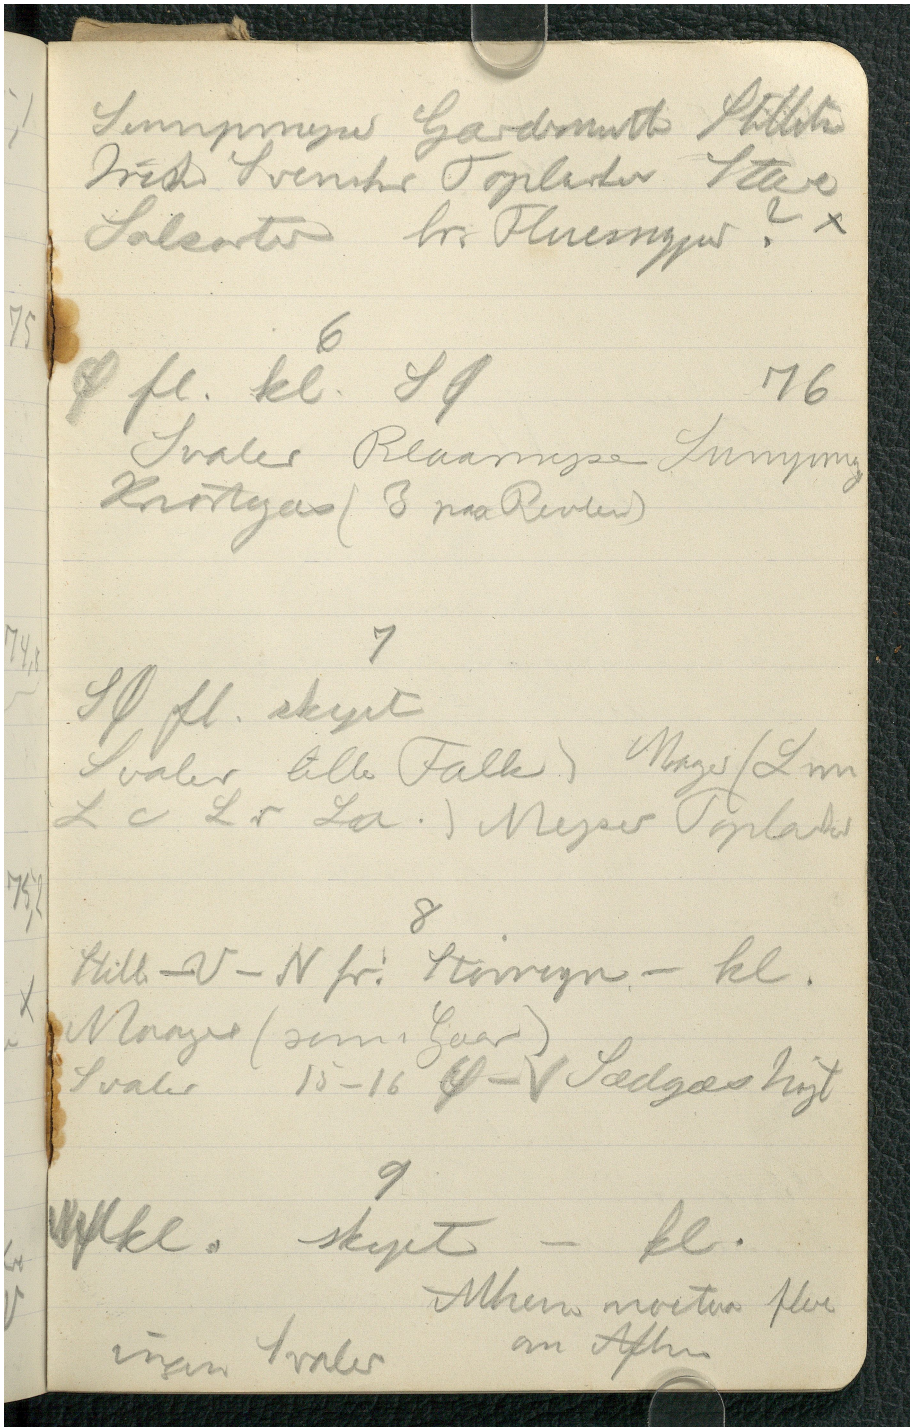 Sumpmejser Gærdesmutte Stillits
Irisk Svenske Toplærker Stære
Solsorter br. Fluesnapper ? x
6
Ø fl. kl. SØ 76
Svaler Blaamejse Sumpmejs
Knortegæs ( 3 paa Revlen)
7
SØ fl. skyet
Svaler lille Falk) Maager (L m
L c L r La .) Mejser Toplærker
8
Still – V – N fr: Støvregn – kl.
Maager (som i Gaar)
Svaler 15–16 Ø – V Sædgæs højt
9
kl. skyet – fl.
flere
ingen Svaler om Aften
75
74,8
75,2
x
V